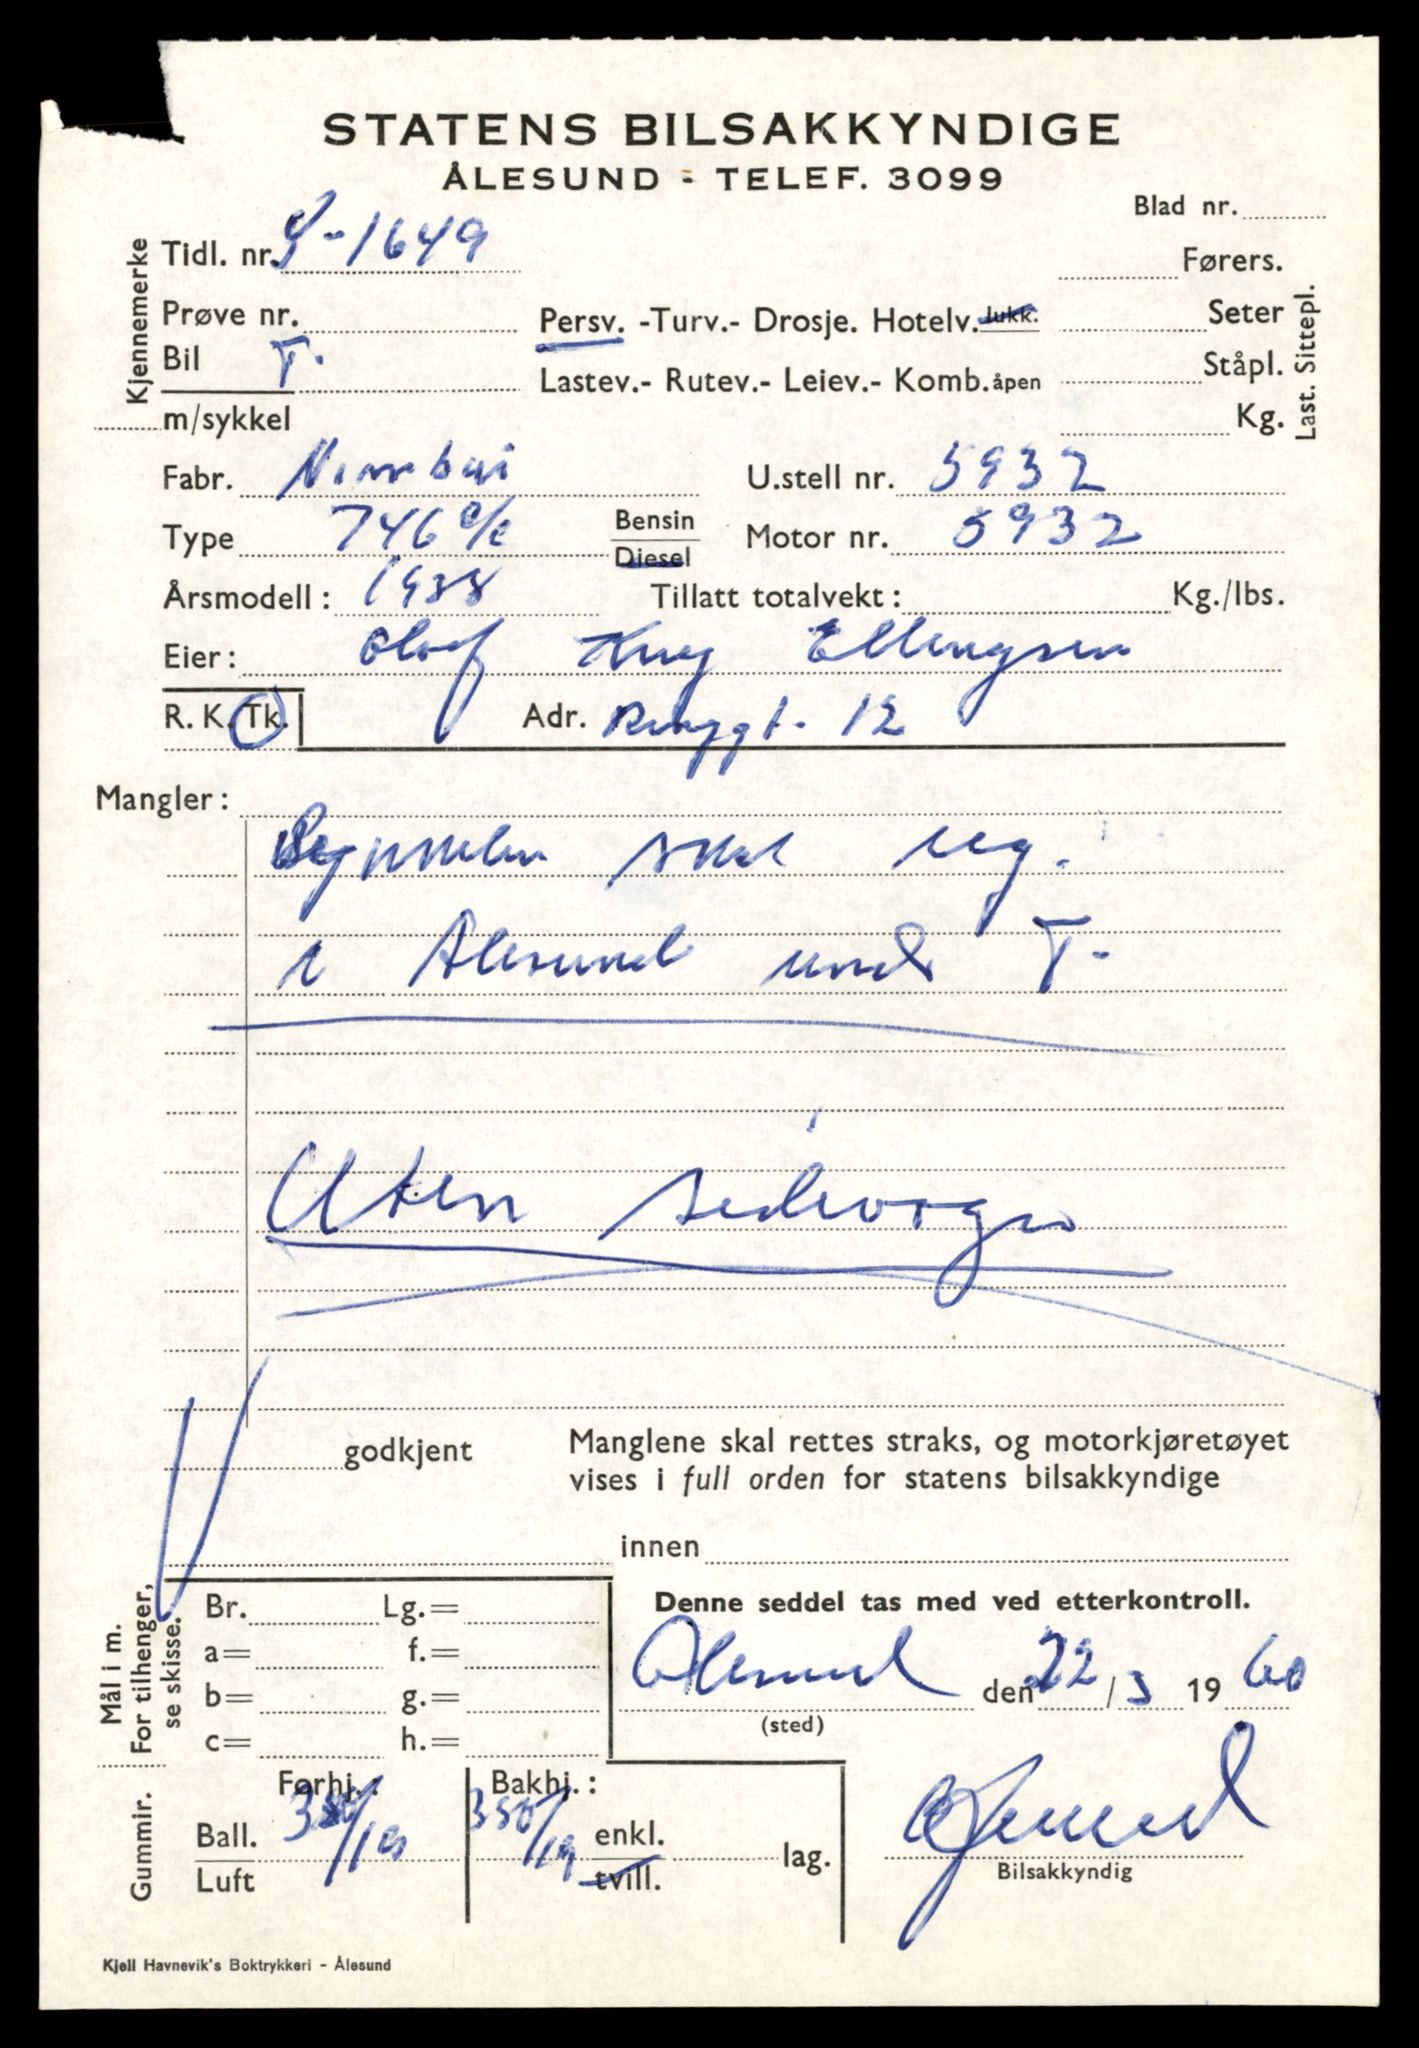 STATENS BILSAKKYNDIGE
ÅLESUND - TELEF. 3099
Blad nr.
Kjennemerke
Tidl. nr. -1649
Førers.
Prøve nr.
Persv. -Turv.- Drosje. Hotelv. lukk.
Seter
Bil T.
Lastev.- Rutev.- Leiev.- Komb. åpen
Ståpl.
Last. Sittepl.
m/sykkel
Kg.
Fabr. Nimbus
U.stell nr. 5932
Type 746 c/c
Bensin
Diesel
Motor nr. 5932
Årsmodell: 1938
Tillatt totalvekt: Kg./lbs.
Eier: Olaf Ellingsen
R. K. Tk.
Adr. 12
Mangler:
skal reg.
i Ålesund under T-
Uten sidevogn
godkjent
Manglene skal rettes straks, og motorkjøretøyet
vises i full orden for statens bilsakkyndige
innen
Mål i m.
For tilhenger,
se skisse.
Br. Lg.=
a= f.=
b= g.=
c= h.=
Denne seddel tas med ved etterkontroll.
Ålesund den 22/3 1960
(sted)
Gummir.
Forhj.: Bakhj.:
Ball. 350/19 350/19 enkl.
Luft tvill. lag.
Bilsakkyndig
Kjell Havnevik's Boktrykkeri - Ålesund